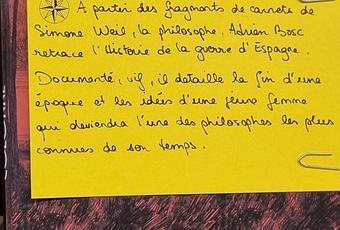 A partir des fragments de carnets de
Simone Weil, la philosophe, Adrien Bosc
retrace l'Histoire de la guerre d'Espagne.
Documenté, vif, il détaille la fin d'une
époque et les idées d'une jeune femme
qui deviendra l'une des philosophes les plus
connues de son temps.